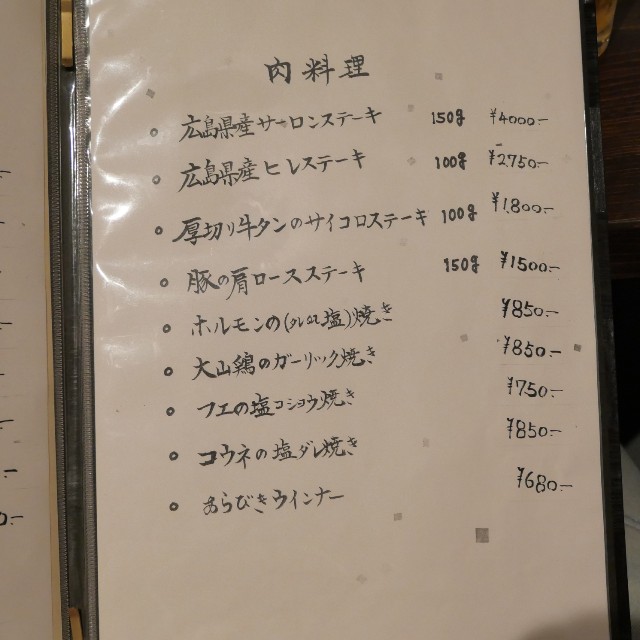 肉料理
広島県産サーロンステーキ 150g ¥4000-
広島県産ヒレステーキ 100g ¥2,750-
厚切り牛タンのサイコロステーキ 100g ¥1,800-
豚の肩ロースステーキ 150g ¥1500-
ホルモンの(タレor塩)焼き ¥850-
大山鶏のガーリック焼き ¥850-
フエの塩コショウ焼き ¥750-
コウネの塩ダレ焼き ¥850-
あらびきウインナー ¥680-